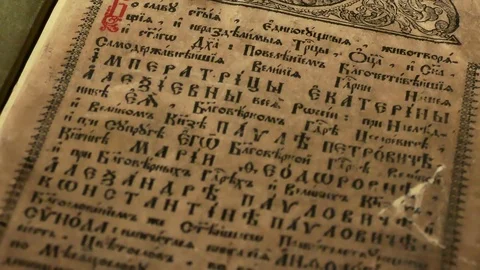 Во славу ст҃ыѧ, Единосꙋщныѧ, животворѧ-
щїѧ, и нераздѣлимыѧ Трⷪ҇цы, Ѻц҃а, и Сн҃а,
и ст҃агѡ Дх҃а: Повелѣнїемъ Бл҃гочестивѣйшїѧ
Самодержавнѣйшїѧ Великїѧ Гдⷭ҇рни Нашеѧ
ИМПЕРАТРИЦЫ ЕКАТЕРИНЫ
АЛЕѮІЕВНЫ всеѧ Россїи: при Наслѣд-
никѣ ЕѦ, Бл҃говѣрномъ Гдⷭ҇рѣ Цесаревичѣ,
и Великомъ Кнѧзѣ ПАѴЛѢ ПЕТРОВИЧѢ,
и при Сꙋпрꙋгѣ ЕГѠ Бл҃говѣрной Гдⷭ҇рнѣ Великой
Кнѧгинѣ МАРІИ ѲЕОДѠРОВНѢ,
и при Бл҃говѣрныхъ Гдⷭ҇рехъ и Великихъ Кнѧзехъ
АЛЕѮАНДРѢ ПАѴЛОВИЧѢ, и
КѠНСТАНТІНѢ ПАѴЛОВИЧѢ,
Бл҃гословенїемъ же Ст҃ѣйшагѡ Правителствꙋющагѡ
СѴНОДА: напечатасѧ